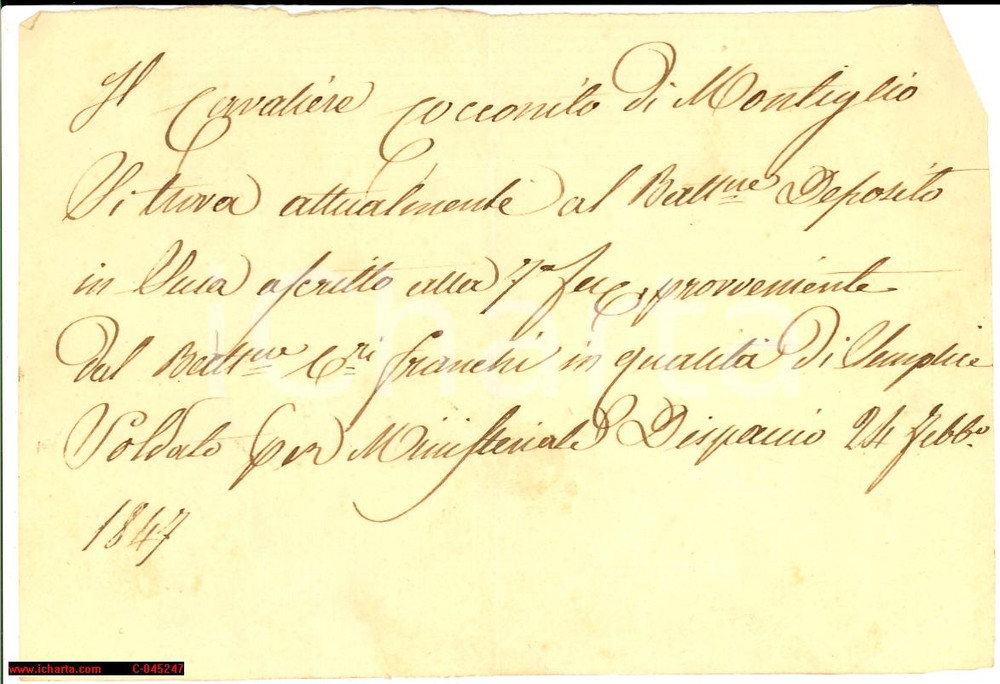 Il Cavaliere Cocconito di Montiglio
Si trova attualmente al Batt.ne Deposito
in Susa ascritto alla 7.a provveniente
dal Batt.ne C.ri franchi in qualità di Semplice
Soldato per Ministeriale Dispaccio 24 Febb.o
1847
iCharta
www.icharta.com C-045247